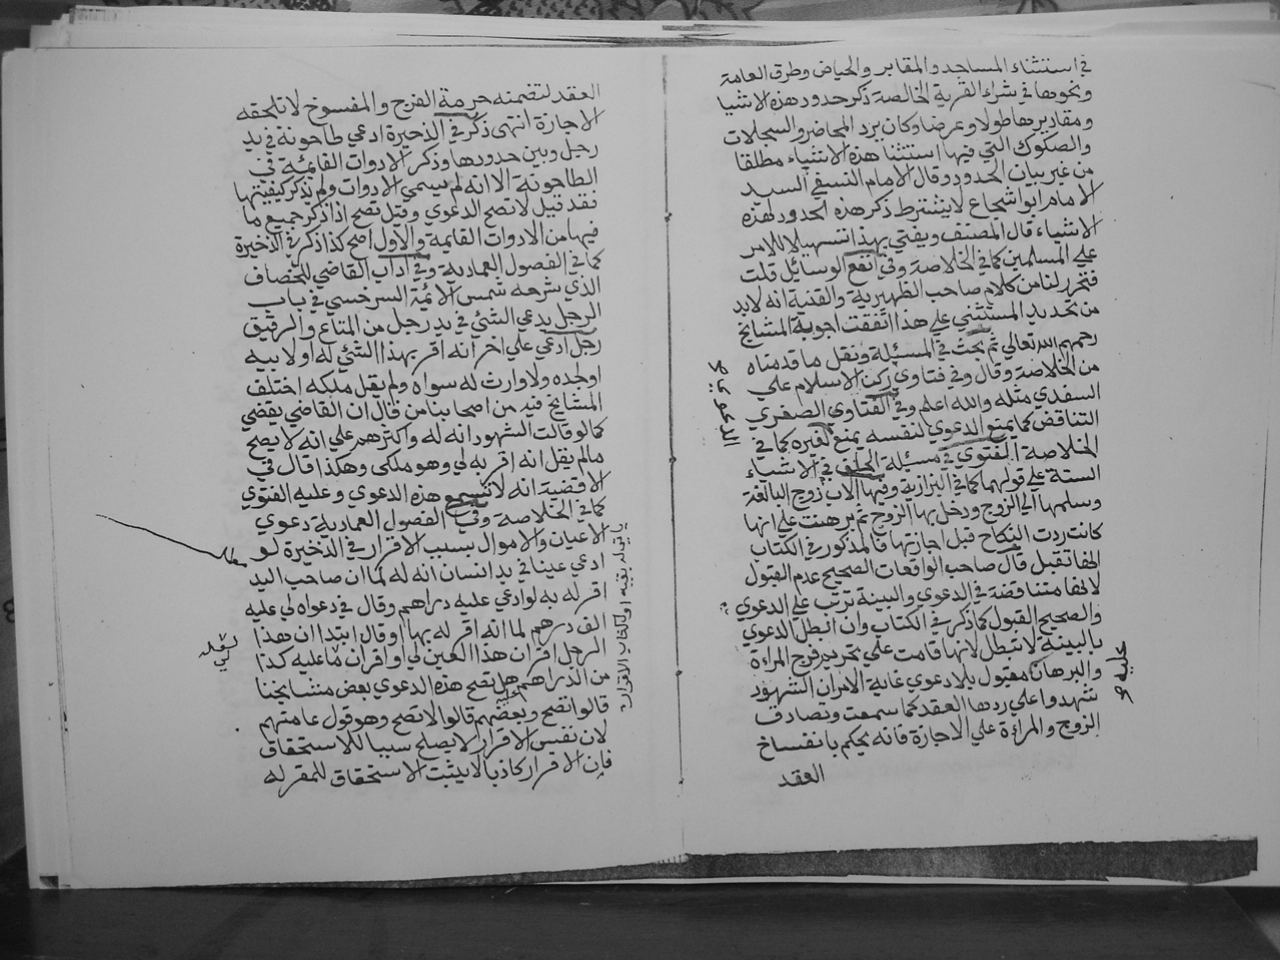 في استثناء المساجد والمقابر والحياض وطرق العامة
ونحوها في شراء القرية الخالصة ذكر حدود هذه الاشيا
ومقاديرها طولا وعرضا وكان يرد المحاضر والسجلات
والصكوك التي فيها استثنا هذه الاشياء مطلقا
من غير بيان الحدود وقال الامام النسفي السيد
الامام ابو اشجاع لا يشترط ذكر هذه الحدود لهذه
الاشياء قال المصنف ويفتي بهذا تسهيلا للامر
علي المسلمين كما في الخلاصة وفي انفع الوسائل قلت
فتحرر لنا من كلام صاحب الظهيرية والقنية انه لابد
من تحديد المستثني علي هذا اتفقت اجوبة المشايخ
رحمهم الله تعالي ثم بحث في المسئلة ونقل ما قدمناه
من الخلاصة وقال وفي فتاوي ركن الاسلام علي
السغدي مثله والله اعلم وفي الفتاوي الصغري
التناقض كما يمنع الدعوي لنفسه يمنع لغيره كما في
الخلاصة الفتوي في مسئلة الحلف في الاشياء
الستة علي قولهما كما في البزازية وفيها الاب زوج البالغة
وسلمها الي الزوج ودخل بها الزوج ثم برهنت علي انها
كانت ردت النكاح قبل اجازتها فالمذكور في الكتاب
انها تقبل قال صاحب الواقعات الصحيح عدم القبول
لانها متناقضة في الدعوي والبينة ترتب علي الدعوي
والصحيح القبول كما ذكر في الكتاب وان ابطل الدعوي
بالبينة لا تبطل لانها قامت علي تحريم فرج المراءة
والبرهان مقبول بلا دعوي غاية الامر ان الشهود
شهدوا علي ردها العقد كما سمعت وتصادف
الزوج والمراءة علي الاجازة فانه يحكم بانفساخ
العقد
الدعوي
عليه
العقد لتضمنه حرمة الفرج والمفسوخ لا تلحقه
الاجازة انتهي ذكر في الذخيرة ادعي طاحونة في يد
رجل وبين حدودها وذكر الادوات القائمة في
الطاحونة الا انه لم يسمي الادوات ولم يذكر كيفيتها
فقد قيل لا تصح الدعوي وقيل تصح اذا ذكر جميع ما
فيها من الادوات القايمة والاول اصح كذا ذكر في الذخيرة
كما في الفصول العمادية وفي اداب القاضي للخصاف
الذي شرحه شمس الائمة السرخسي في باب
الرجل يدعي الشئ في يد رجل من المتاع والرقيق
رجل ادعي علي اخر انه اقر بهذا الشئ له او لابيه
او لجده ولا وارث له سواه ولم يقل ملكه اختلف
المشايخ فيه من اصحابنا من قال ان القاضي يقضي
كما لو قالت الشهود انه له واكثرهم علي انه لا يصح
ما لم يقل انه اقر به لي وهو ملكي وهكذا قال في
الاقضية انه لا تسمع هذه الدعوي وعليه الفتوي
كما في الخلاصة وفي الفصول العمادية دعوي
الاعيان والاموال بسبب الاقرار في الذخيرة لو
ادعي عينا في يد انسان انه له لما ان صاحب اليد
اقر له به لو ادعي عليه دراهم وقال في دعواه لي عليه
الف درهم لما انه اقر له بها او قال ابتدا ان هذا
الرجل اقر ان هذا العين لي او اقر ان ما عليه كذا
من الدراهم هل تصح هذه الدعوي بعض مشايخنا
قالوا تصح وبعضهم قالوا لا تصح وهو قول عامتهم
لان نفس الاقرار لا يصلح سببا للاستحقاق
فان الاقرار كاذبا لا يثبت الاستحقاق للمقر له